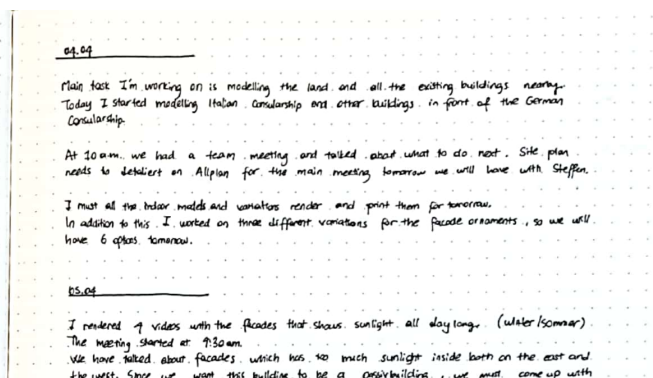 04.04
Main task I'm working on is modelling the land and all the existing buildings nearby.
Today I started modelling Italian Consularship and other buildings in front of the German
Consularship
At 10 a.m. we had a team meeting and talked about what to do next. Site plan
needs to detailiert on Allplan for the main meeting tomorrow we will have with Steffen.
I must all the indoor models and variations render and print them for tomorrow.
In addition to this I worked on three different variations for the facade ornaments, so we will
have 6 options tomorrow.
05.04
I rendered 4 videos with the facades that shows sunlight all day long. (winter/sommer)
The meeting started at 9:30am.
We have talked about facades which has too much sunlight inside both on the east and
the west. Since we want this building to be a building, we must come up with